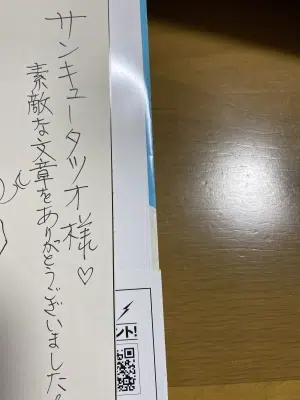 サンキュータツオ様♡
素敵な文章をありがとうございました。
ント!